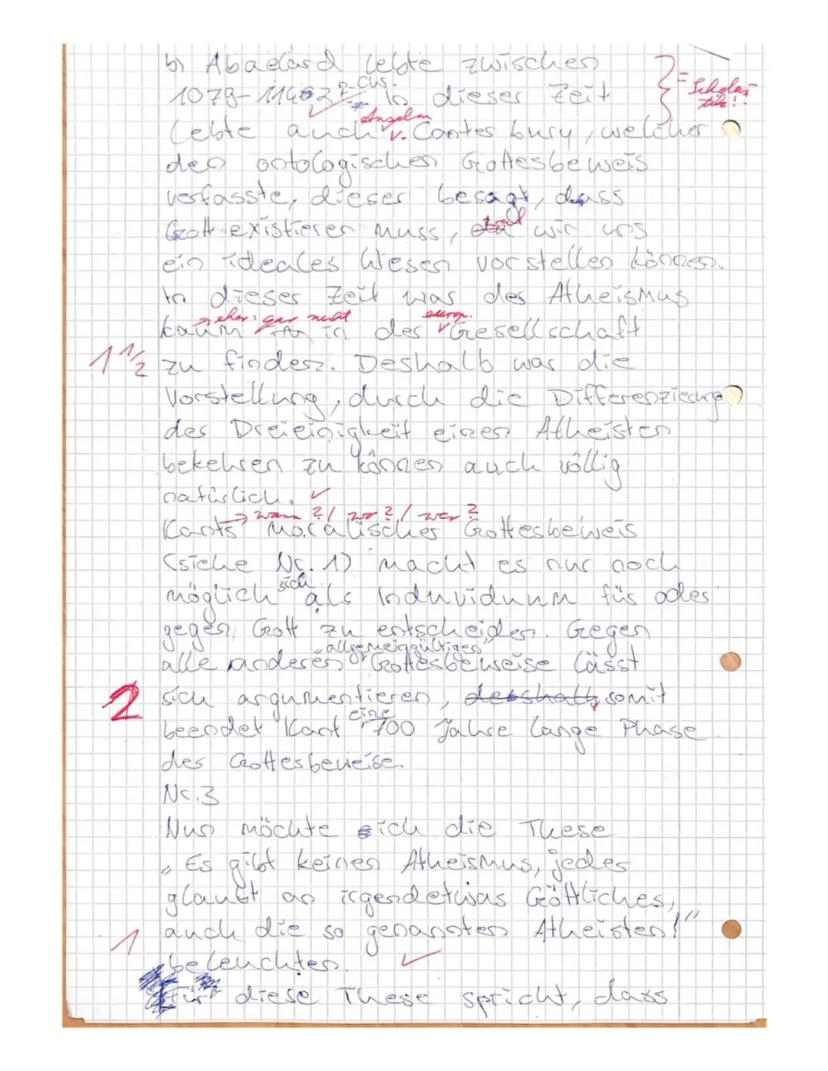 b) Abaelard lebte zwischen
1079-1142 n. Chs. In dieser Zeit = Scholastik!!
lebte auch Anselm v. Canterbury, welcher
den ontologischen Gottesbeweis
verfasste, dieser besagt, dass
Gott existieren muss, weil wir uns
ein ideales Wesen vorstellen können.
In dieser Zeit war der Atheismus
→ eher: gar nicht europ.
kaum in der Gesellschaft
1 1/2 zu finden. Deshalb war die
Vorstellung, durch die Differenzierung
der Dreieinigkeit einen Atheisten
bekehren zu können auch völlig
natürlich. ✓
→ wann?/ wo?/ wer?
Kants moralischer Gottesbeweis
(siehe Nr. 1) macht es nur noch
möglich sich als Individuum für oder
gegen Gott zu entscheiden. Gegen
alle anderen "allgemeingültigen" Gottesbeweise lässt
2 sich argumentieren, deshalb, somit
beendet Kant eine 700 Jahre lange Phase
der Gottesbeweise.
Nr. 3
Nun möchte ich die These
„Es gibt keinen Atheismus, jeder
glaubt an irgendetwas Göttliches,
1 auch die so genannten Atheisten!"
beleuchten. ✓
Für diese These spricht, dass